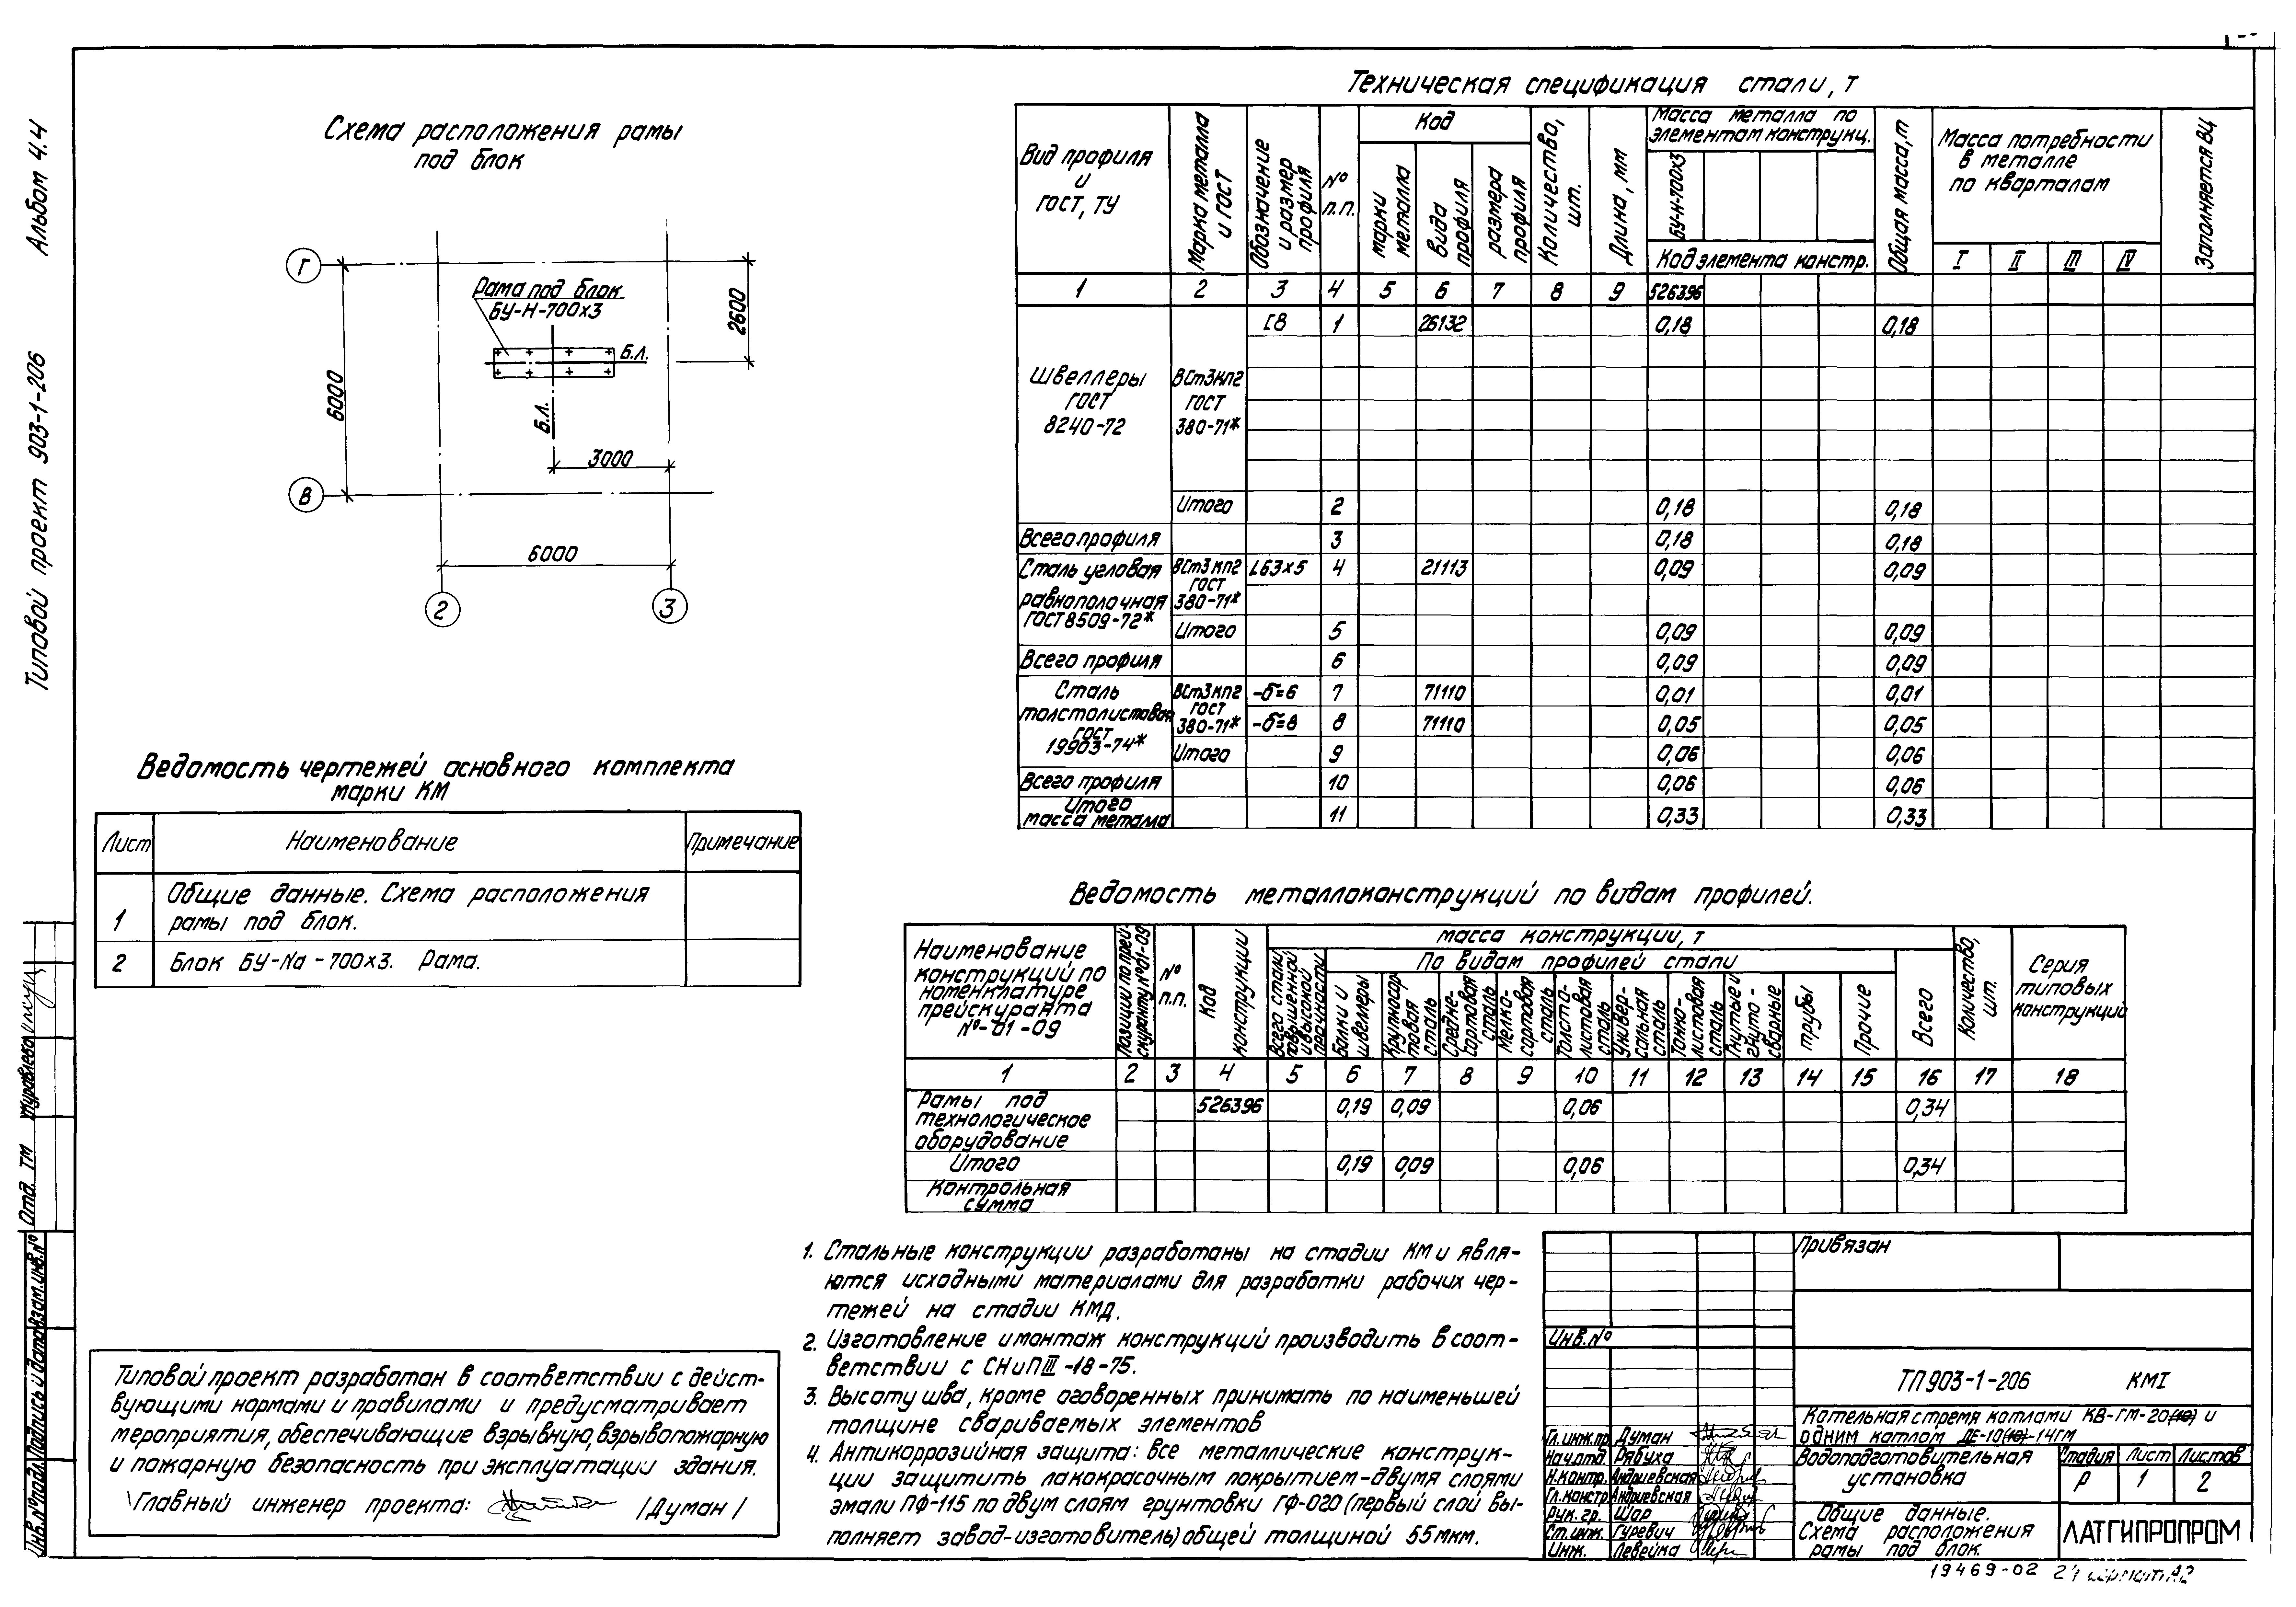 Альбом 4.4
Типовой проект 903-1-206
Схема расположения рамы
под блок
Г
Рама под блок
БУ-Н-700х3
Б.Л.
Б.Л.
2600
6000
3000
В
6000
2
3
Техническая спецификация стали, т
Вид профиля и ГОСТ, ТУ
Марка металла и ГОСТ
Обозначение и размер профиля
№ п.п.
Код
марки металла
вида профиля
размера профиля
Количество, шт.
Длина, мм
Масса металла по элементам конструкц.
БУ-Н-700х3
Код элемента констр.
Общая масса, т
Масса потребности в металле по кварталам
I II III IV
Заполняется ВЦ
1 2 3 4 5 6 7 8 9 526396
Швеллеры ГОСТ 8240-72
ВСт3кп2 ГОСТ 380-71*
[8 1 26132 0,18 0,18
Итого 2 0,18 0,18
Всего профиля 3 0,18 0,18
Сталь угловая равнополочная ГОСТ 8509-72*
ВСт3кп2 ГОСТ 380-71*
L63×5 4 21113 0,09 0,09
Итого 5 0,09 0,09
Всего профиля 6 0,09 0,09
Сталь толстолистовая ГОСТ 19903-74*
ВСт3кп2 ГОСТ 380-71*
-δ=6 7 71110 0,01 0,01
-δ=8 8 71110 0,05 0,05
Итого 9 0,06 0,06
Всего профиля 10 0,06 0,06
Итого масса метала 11 0,33 0,33
Ведомость чертежей основного комплекта
марки КМ
Лист Наименование Примечание
1 Общие данные. Схема расположения
рамы под блок.
2 Блок БУ-Na-700х3. Рама.
Ведомость металлоконструкций по видам профилей.
Наименование конструкций по номенклатуре прейскуранта №-01-09
Позиции по прейскуранту №01-09
№ п.п.
Код конструкции
масса конструкции, т
Всего стали повышенной и высокой прочности
По видам профилей стали
Балки и швеллеры
Крупносортовая сталь
Среднесортовая сталь
Мелкосортовая сталь
Толстолистовая сталь
Универсальная сталь
Тонколистовая сталь
Гнутые и гнутосварные
трубы
Прочие
Всего
Количество, шт.
Серия типовых конструкций
1 2 3 4 5 6 7 8 9 10 11 12 13 14 15 16 17 18
Рамы под технологическое оборудование
526396 0,19 0,09 0,06 0,34
Итого 0,19 0,09 0,06 0,34
Контрольная сумма
1. Стальные конструкции разработаны на стадии КМ и явля-
ются исходными материалами для разработки рабочих чер-
тежей на стадии КМД.
2. Изготовление и монтаж конструкций производить в соот-
ветствии с СНиП III-18-75.
3. Высоту шва, кроме оговоренных принимать по наименьшей
толщине свариваемых элементов
4. Антикоррозийная защита: все металлические конструк-
ции защитить лакокрасочным покрытием-двумя слоями
эмали ПФ-115 по двум слоям грунтовки ГФ-020 (первый слой вы-
полняет завод-изготовитель) общей толщиной 55мкм.
Типовой проект разработан в соответствии с дейст-
вующими нормами и правилами и предусматривает
мероприятия, обеспечивающие взрывную, взрывопожарную
и пожарную безопасность при эксплуатации здания.
Главный инженер проекта: /Думан/
Отд. ТМ
Инв.№ подл. Подпись и дата Взам.инв.№
Привязан
Инв.№
ТП 903-1-206 КМ1
Котельная с тремя котлами КВ-ГМ-20(10) и
одним котлом ДЕ-10(10)-14ГМ
Гл.инж.пр. Думан
Нач.отд. Рябуха
Н.контр. Андриевская
Гл.констр. Андриевская
Рук.гр. Шар
Ст.инж. Гуревич
Инж. Левейка
Водоподготовительная
установка
Стадия Лист Листов
Р 1 2
Общие данные.
Схема расположения
рамы под блок.
ЛАТГИПРОПРОМ
19469-02 21